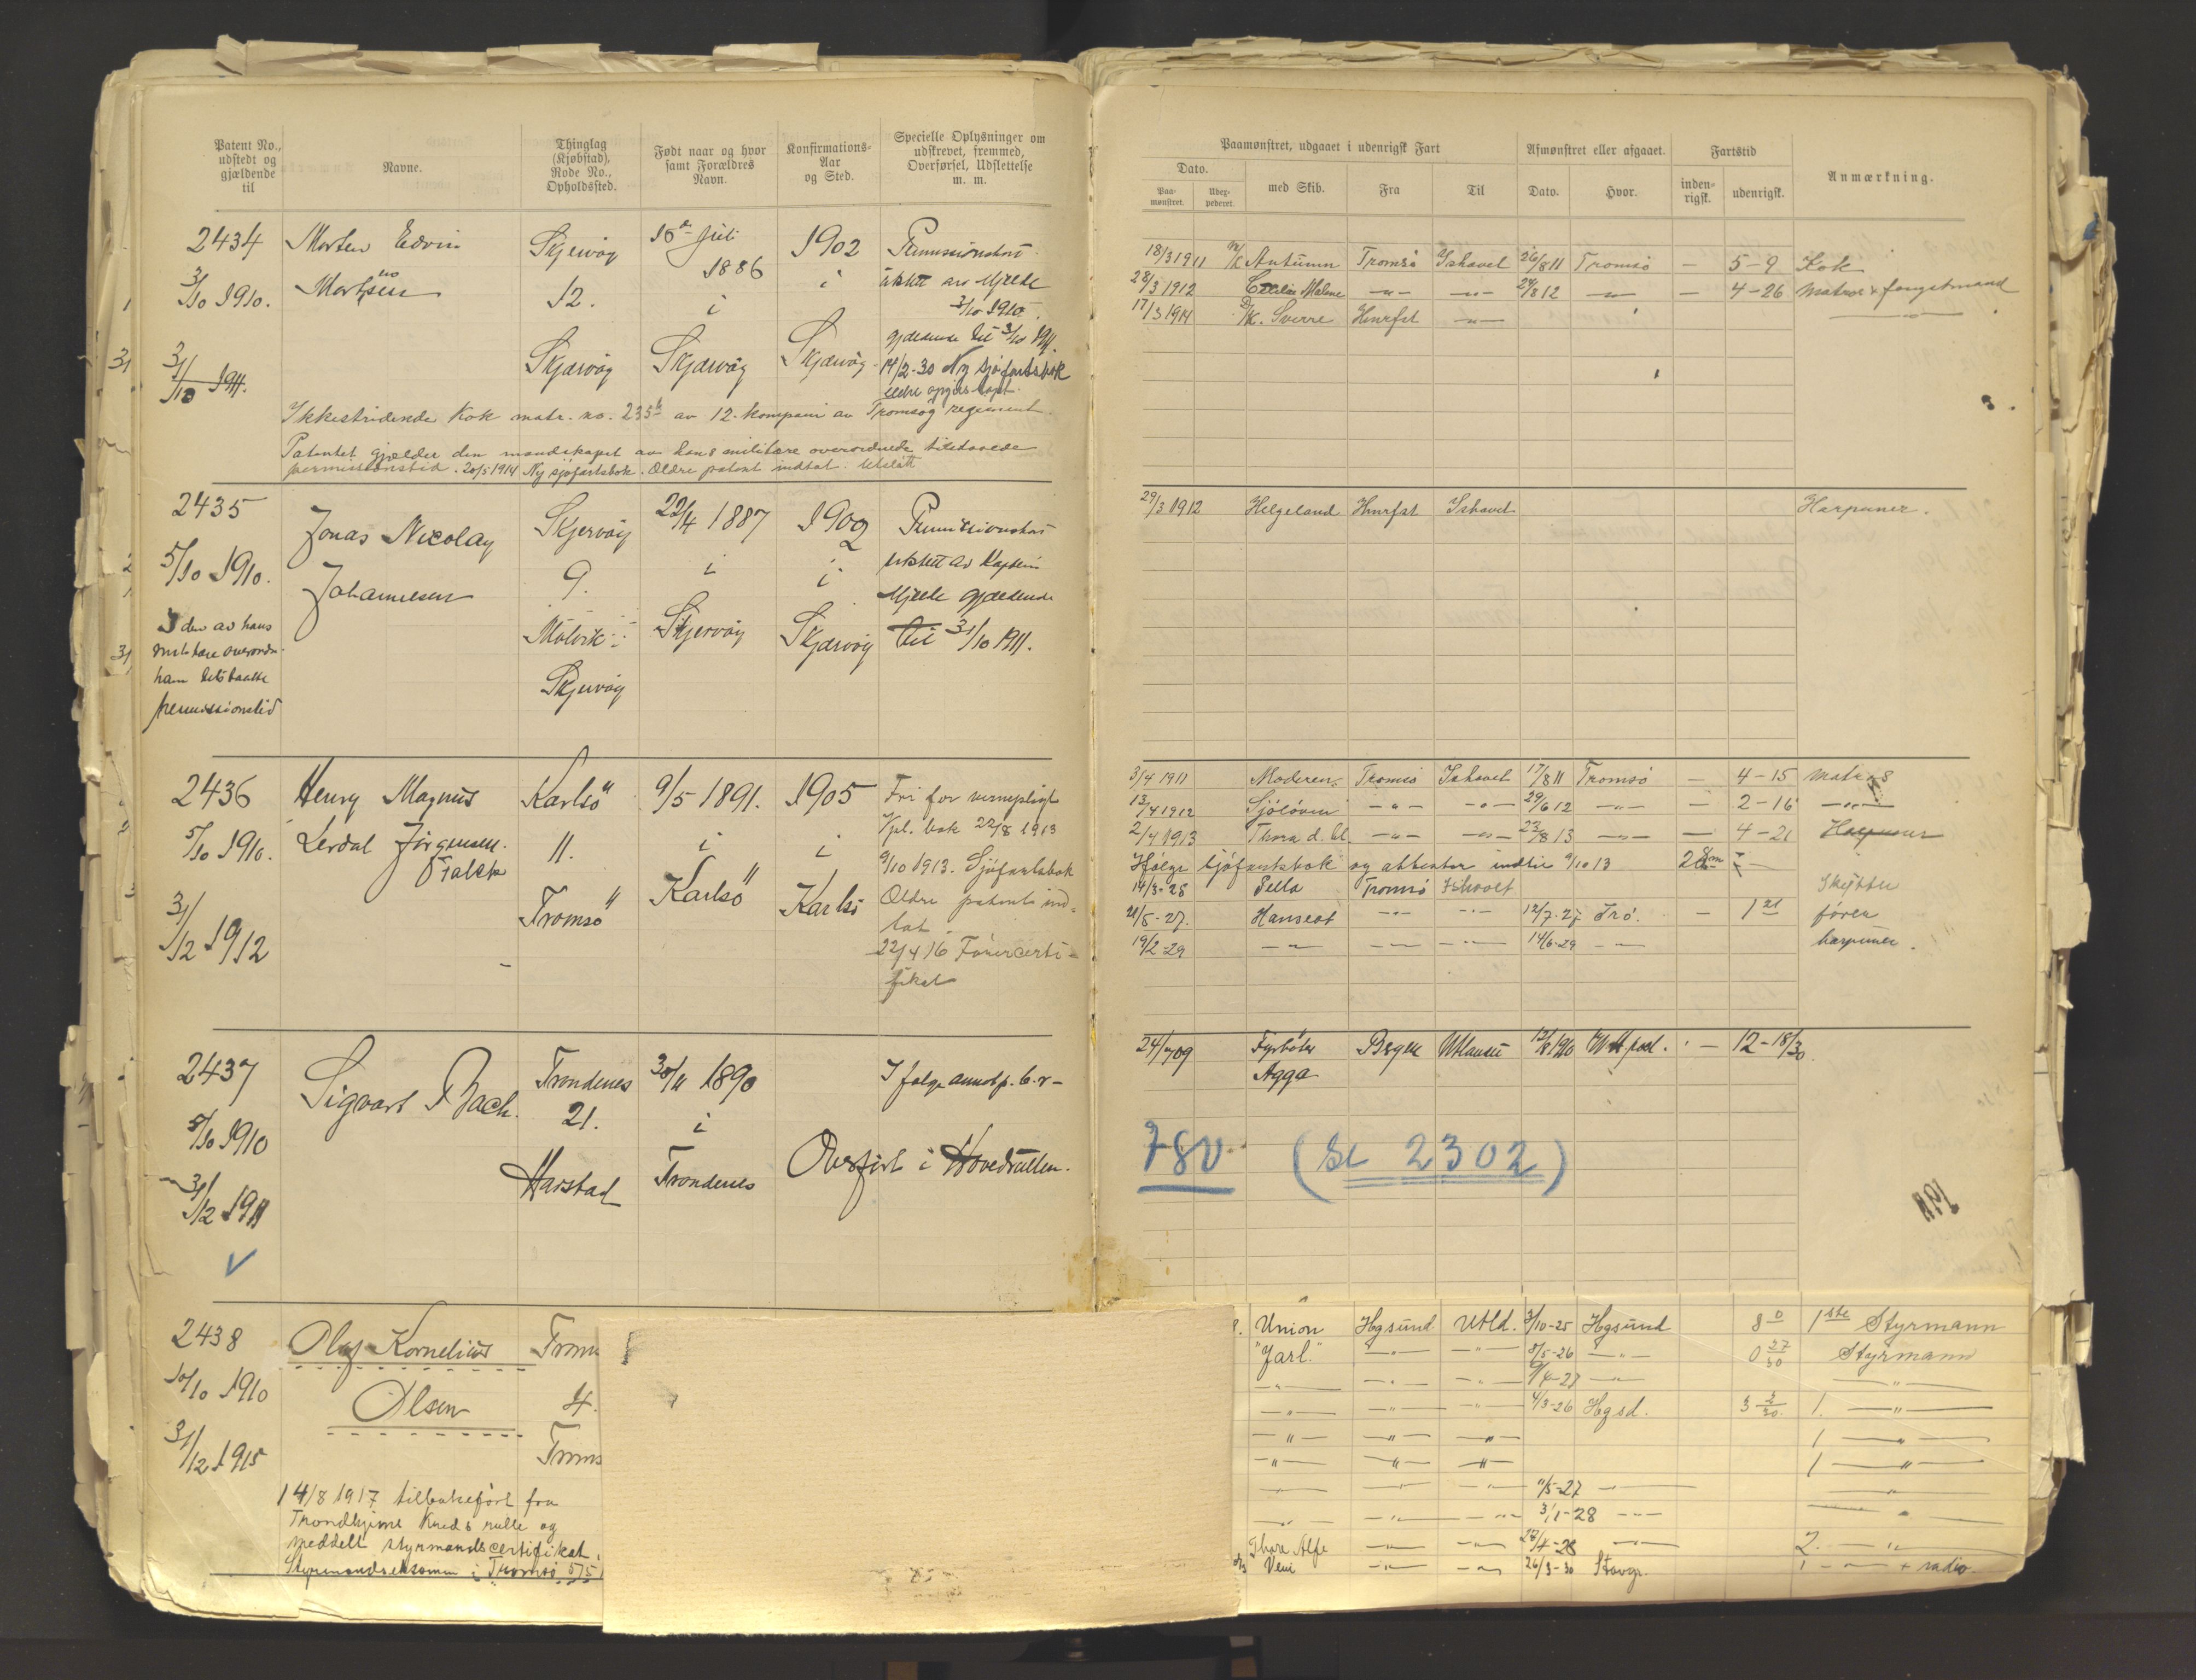 Patent No., udstedt og gjældende til
Navne.
Thinglag (Kjøbstad), Rode No., Opholdssted.
Født naar og hvor samt Forældres Navn.
Konfirmations-Aar og Sted.
Specielle Oplysninger om udskrevet, fremmed, Overførsel, Udslettelse m. m.
2434 Morten Edvin Skjervøy 15de Juli 1902 Permissionshest
3/10 1910. Mortensen 12. 1886 i utstett av Mjelde
i 3/10 1910.
gjældende til 3/10 1911.
31/10 1911. Skjærvøy Skjærvøy Skjærvøy 14/2-30 Ny sjøfartsbok
eldre opgis tapt.
Ikkestridende Kok matr. no. 235 b av 12. kompani av Tromsøg regiment.
Patentet gjælder den mandskapet av hans militære overordnede tilstaaede
permissionstid. 20/5 1914 Ny sjøfartsbok. Ældre patent indtat.
2435 Jonas Nicolay Skjervøy 22/4 1887 1902 Permissionshest
5/10 1910. Johannesen 9. i i utstett av Kaptein
Mjelde gjældende
I den av hans Skjervøy Skjærvøy til 31/10 1911.
militære overordn.
ham tilstaaette Skjervøy
permissionstid
2436 Henry Magnus Karlsö 9/5 1891. 1905 Fri for vernepligt
5/10 1910. Lerdal Jörgensen. 11. i i Vpl. bok 22/8 1913
Falck 9/10 1913. Sjöfartsbok
31/12 1912 Tromsö Karlsö Karlsö Ældre patent ind-
tat.
22/4 16 Förercerti-
fikat
2437 Sigvart Bach. Trondenes 30/11 1890 Ifølge
5/10 1910 21. i
31/12 1911 Harstad Trondenes Overført i Hovedrullen.
2438 Olaf Kornelius
10/10 1910 Olsen 4.
31/12 1915
14/8 1917 tilbakeført fra
Trondhjems Kreds rulle og
meddelt styrmandscertifikat.
Styrmandseksamen i Tromsö
Paamønstret, udgaaet i udenrigsk Fart
Afmønstret eller afgaaet.
Fartstid
Anmærkning.
Dato.
Paa-mønstret.
Uder-pederet.
med Skib.
Fra
Til
Dato.
Hvor.
inden-rigsk.
udenrigsk.
18/3 1911 Autumn Tromsö Ishavet 26/8 11 Tromsö — 5-9 Kok
28/3 1912 Malene —"— —"— 24/8 12 —"— — 4-26 Matros & fangstmand
17/3 1914 Sverre Hmrfst —"— —"—
29/3 1912 Helgeland Hmrfst Ishavet Harpuner.
3/4 1911 Moderen Tromsö Ishavet 17/8 11 Tromsö — 4-15 Matros
13/4 1912 Sjölöven —"— —"— 29/6 12 —"— — 2-16 —"—
2/4 1913 Thora d. bl. —"— —"— 23/8 13 —"— — 4-21 Harpuner
Ifølge sjøfartsbok og attester indtil 9/10 13
14/3-28 Sella Tromsö Ishavet Skytter
21/5-27. Hanseat —"— —"— 12/7-27 Trö. — 1 21 fører
19/2-29 —"— —"— —"— 14/6-29 —"— harpuner.
24/7 09 Fyrböter Bergen Utlandet — 12-18/30.
Agga
780 (se 2302)
Union Hgsund Utld. 3/10-25 Hgsund 8 0 1ste Styrmann
"Jarl." —"— —"— 8/5-26 —"— 0 27/30 Styrmann
—"— —"— —"— —"— —"—
—"— —"— —"— 4/3-26 Hgsd. 3 2/30. 1. —"—
—"— —"— —"— 1 —"—
—"— —"— —"— 1 —"—
—"— —"— 11/5-27 —"— —"—
—"— —"— —"— 3/1-28 —"— —"—
Thora Alfe —"— —"— 27/4-28 —"— 2. —"—
Veni —"— —"— 26/3-30 Stavgr. 1 —"— + radio.